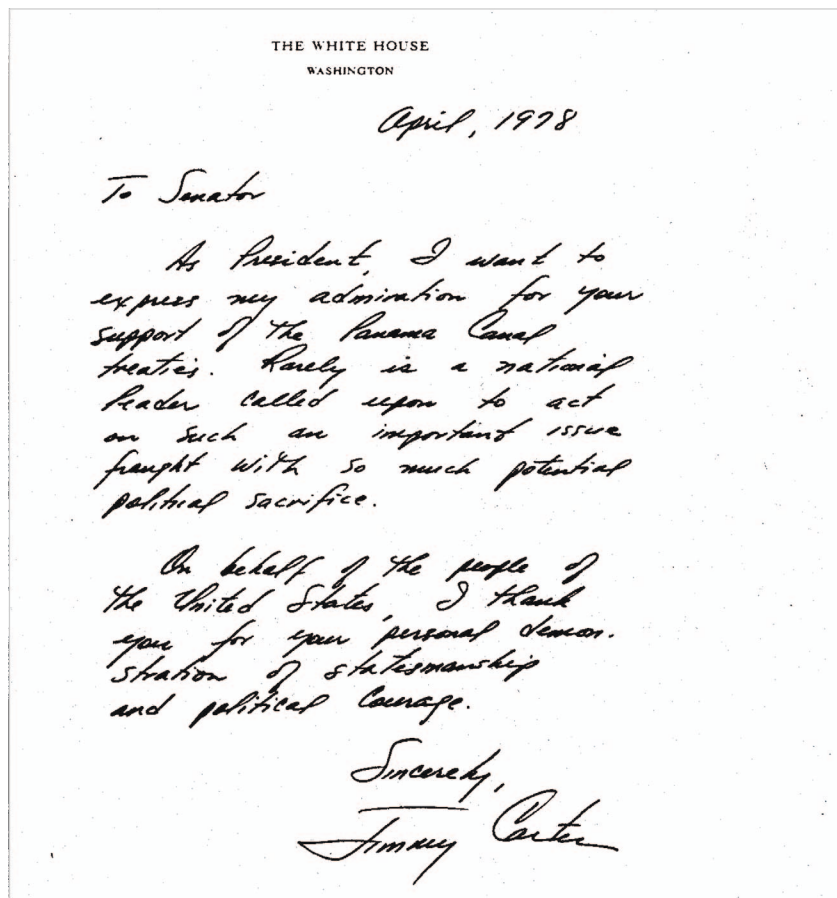 THE WHITE HOUSE
WASHINGTON
April, 1978
To Senator
As President, I want to
express my admiration for your
support of the Panama Canal
treaties. Rarely is a national
leader called upon to act
on such an important issue
fraught with so much potential
political sacrifice.
On behalf of the people of
the United States, I thank
you for your personal demon-
stration of statesmanship
and political courage.
Sincerely,
Jimmy Carter